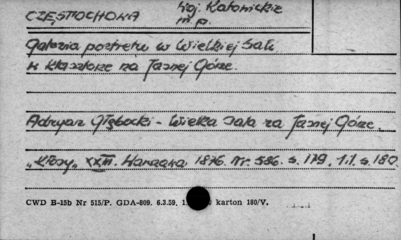 CZĘSTOCHOWA
Woj. Katowickie
m.p.
Galeria portretu w Wielkiej Sali
w klasztorze na Jasnej Górze.
Adryan Głębocki - Wielka Sala na Jasnej Górze.
"Kłosy" XXIII. Warszawa, 1876. Nr. 586. s. 179, i.l. s. 180
CWD B-15b Nr 515/P. GDA-809. 6.3.59. karton 180/V.